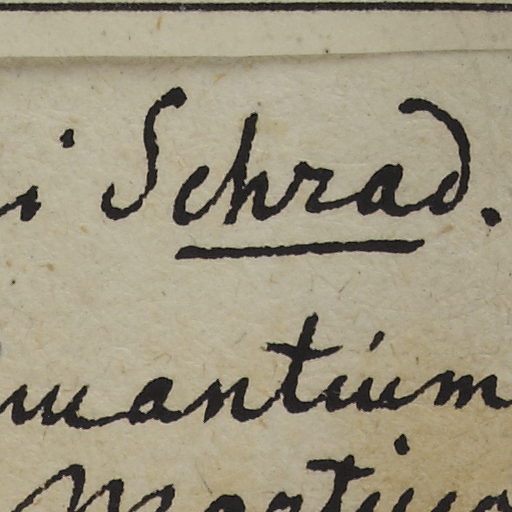 i Schrad.
mantium